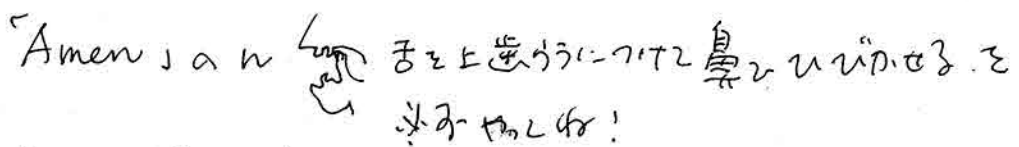 「Amen」のn 舌を上歯うらにつけて鼻でひびかせる.を
必ずやってね!